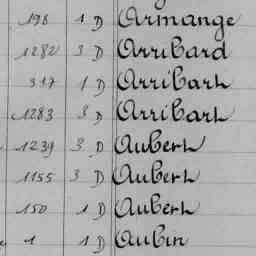 198 1 D Armange
1282 3 D Arribard
317 1 D Arribart
1283 3 D Arribart
1239 3 D Aubert
1155 3 D Aubert
150 1 D Aubert
1 1 D Aubin